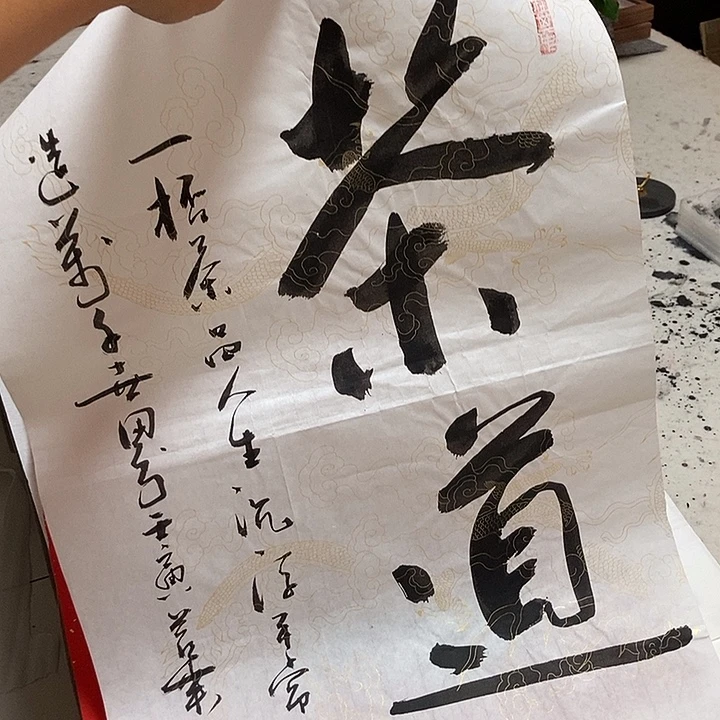 茶道
一杯茶品人生沉浮平常
造萬千世界壬寅